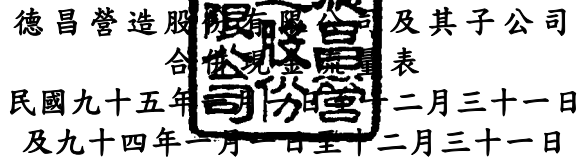 德昌營造股份有限公司及其子公司
合併現金流量表
民國九十五年一月一日至十二月三十一日
及九十四年一月一日至十二月三十一日
昌營
股份
限公司